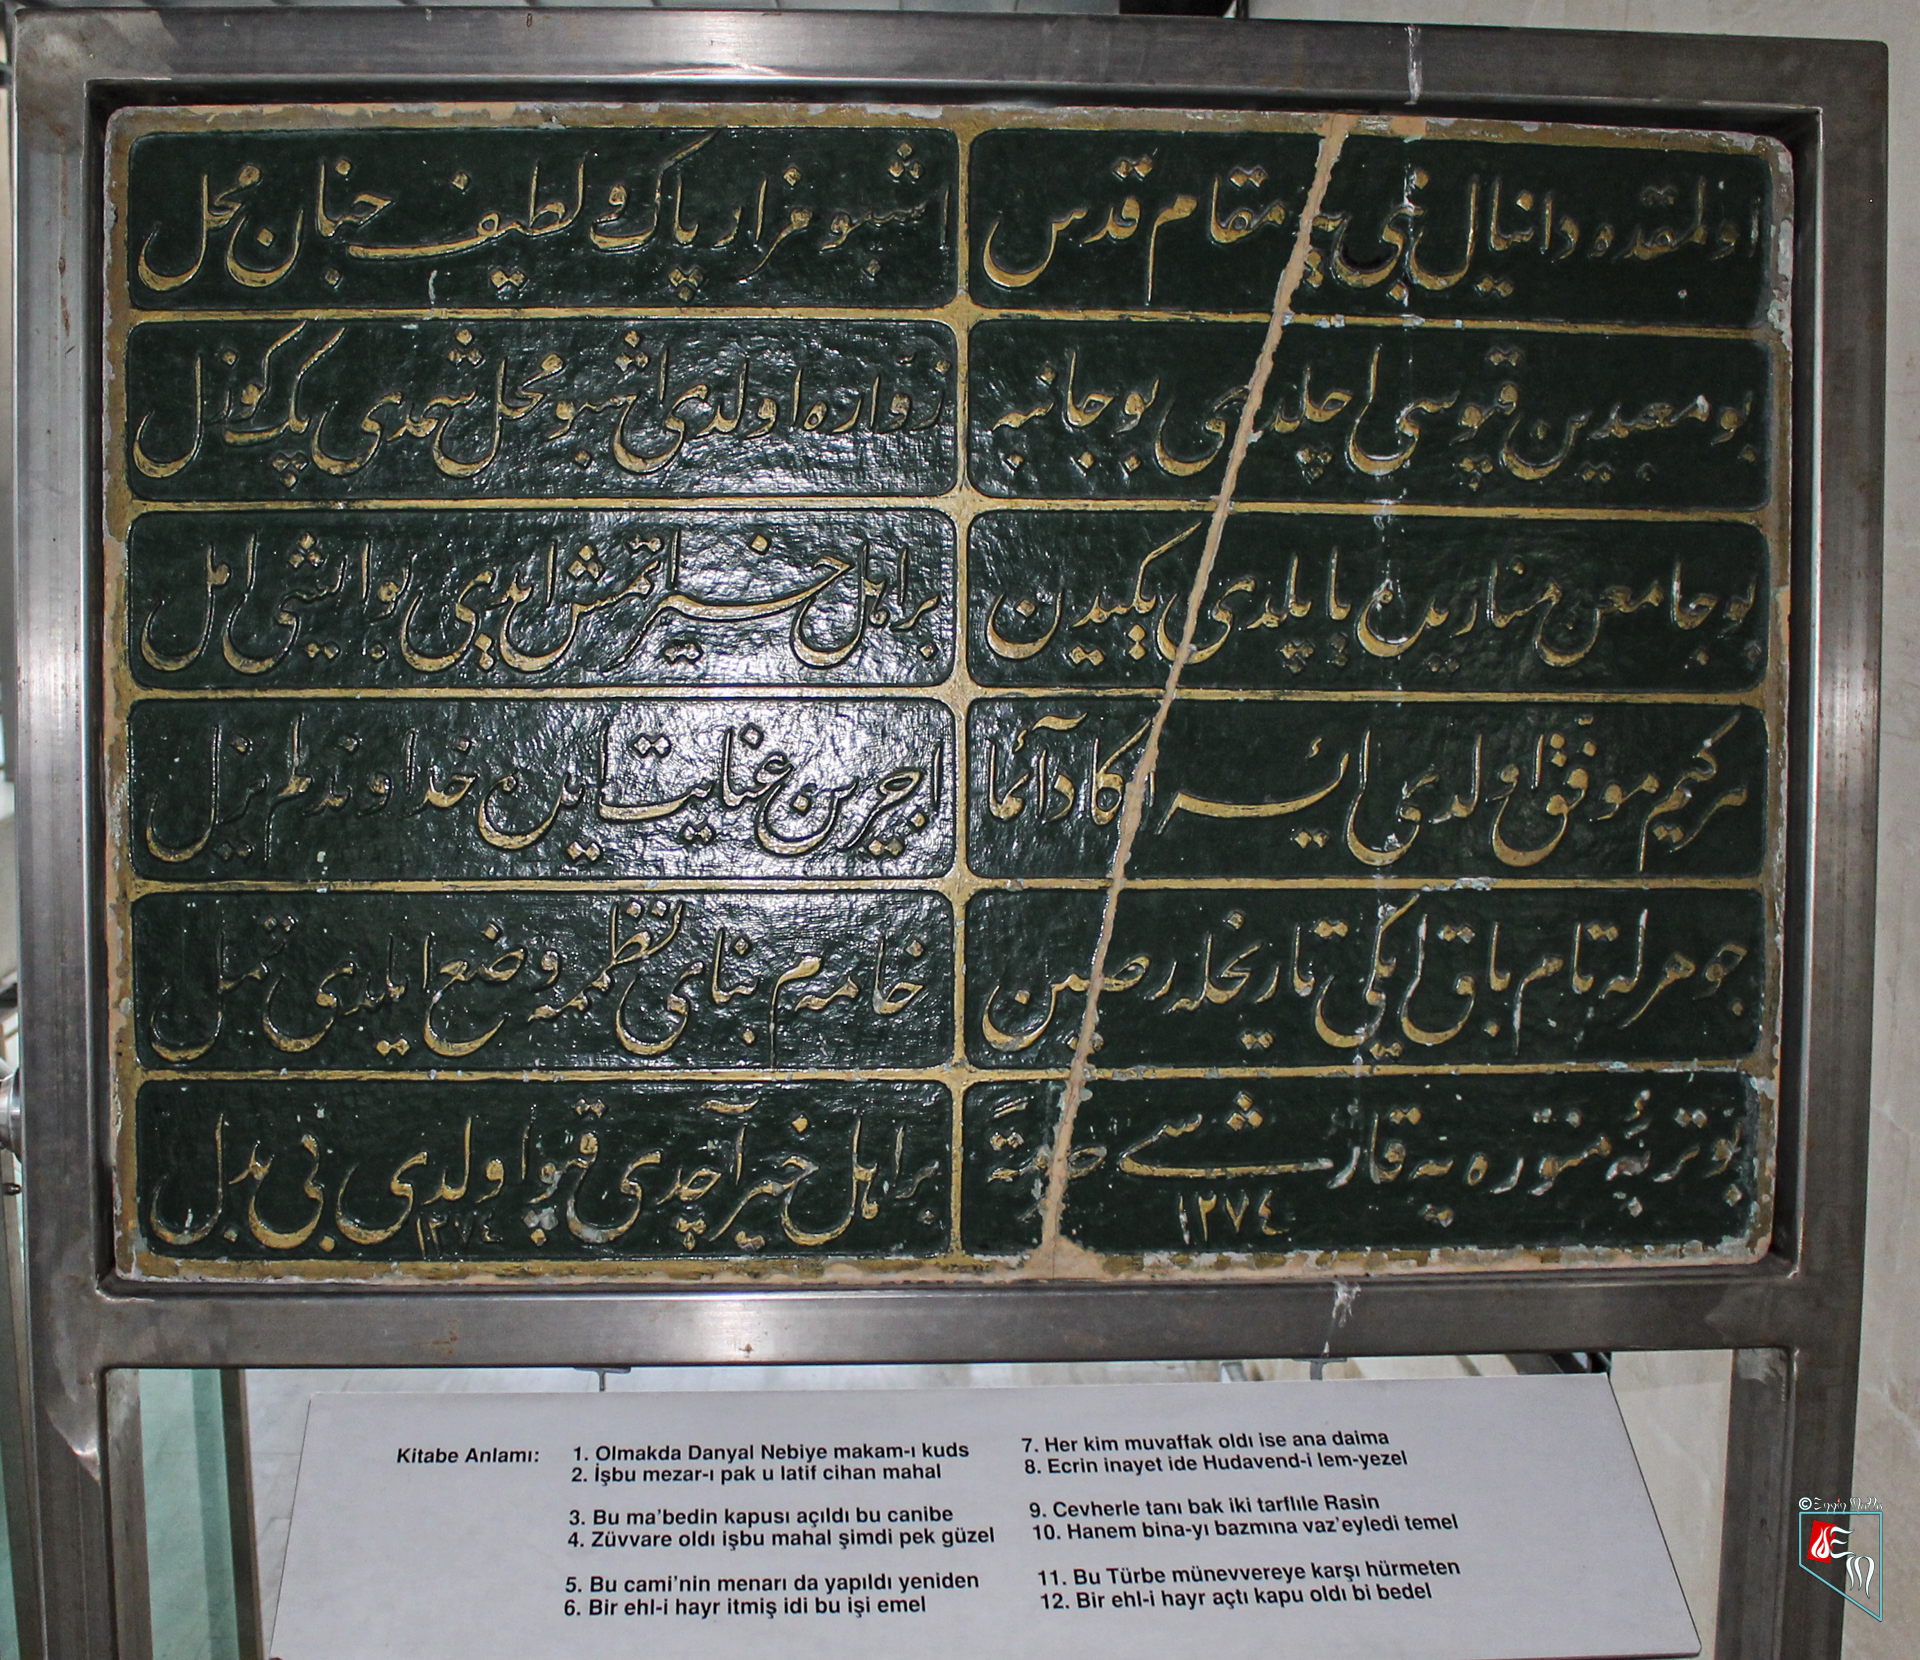 اولمقده دانیال نبی یه مقام قدس
اشبو مزار پاك و لطیف جنان محل
بو معبدین قپوسی اچلدی بو جانبه
زوّاره اولدی اشبو محل شمدی پك كوزل
بو جامعن مناریده یاپلدی یكیدن
بر اهل خیر ایتمش ایدی بو ایشی امل
هركیم موفّق اولدی ایسه اكا دآئما
اجرین عنایت ایده خداوند لم یزل
جوهرله تام باق ایكی تاریخله رصین
خامه م بنای نظممه وضع ایلدی تمل
بو تربهٔ منوّره یه قارشی حرمةً
١٢٧٤
بر اهل خیر آچدی قپو اولدی بی بدل
١٢٧٤
Kitabe Anlamı:
1. Olmakda Danyal Nebiye makam-ı kuds
2. İşbu mezar-ı pak u latif cihan mahal
3. Bu ma'bedin kapusı açıldı bu canibe
4. Züvvare oldı işbu mahal şimdi pek güzel
5. Bu cami'nin menarı da yapıldı yeniden
6. Bir ehl-i hayr itmiş idi bu işi emel
7. Her kim muvaffak oldı ise ana daima
8. Ecrin inayet ide Hudavend-i lem-yezel
9. Cevherle tanı bak iki tarflıle Rasin
10. Hanem bina-yı bazmına vaz'eyledi temel
11. Bu Türbe münevvereye karşı hürmeten
12. Bir ehl-i hayr açtı kapu oldı bi bedel